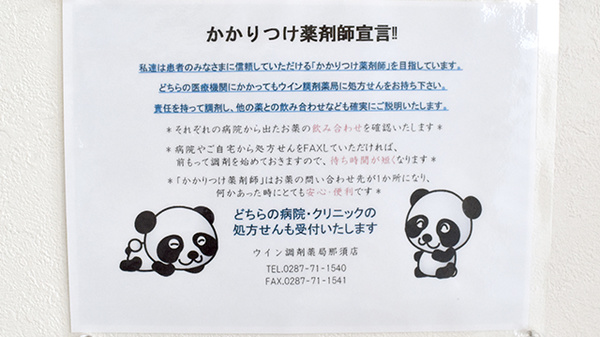 かかりつけ薬剤師宣言!!
私達は患者のみなさまに信頼していただける「かかりつけ薬剤師」を目指しています。
どちらの医療機関にかかってもウイン調剤薬局に処方せんをお持ち下さい。
責任を持って調剤し、他の薬との飲み合わせなども確実にご説明いたします。
＊それぞれの病院から出たお薬の飲み合わせを確認いたします＊
＊病院やご自宅から処方せんをFAXしていただければ、
前もって調剤を始めておきますので、待ち時間が短くなります＊
＊「かかりつけ薬剤師」はお薬の問い合わせ先が1か所になり、
何かあった時にとても安心・便利です＊
どちらの病院・クリニックの
処方せんも受付いたします
ウイン調剤薬局那須店
TEL.0287-71-1540
FAX.0287-71-1541